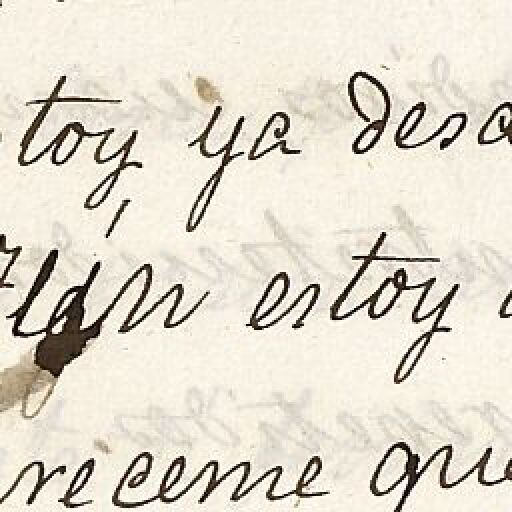 stoy ya desa
estoy
receme que